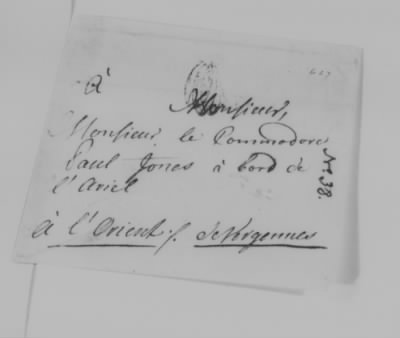 À
Monsieur,
Monsieur le Commodore
Paul Jones à bord de
l'Ariel
à l'Orient f. de Vergennes
N.º 38.